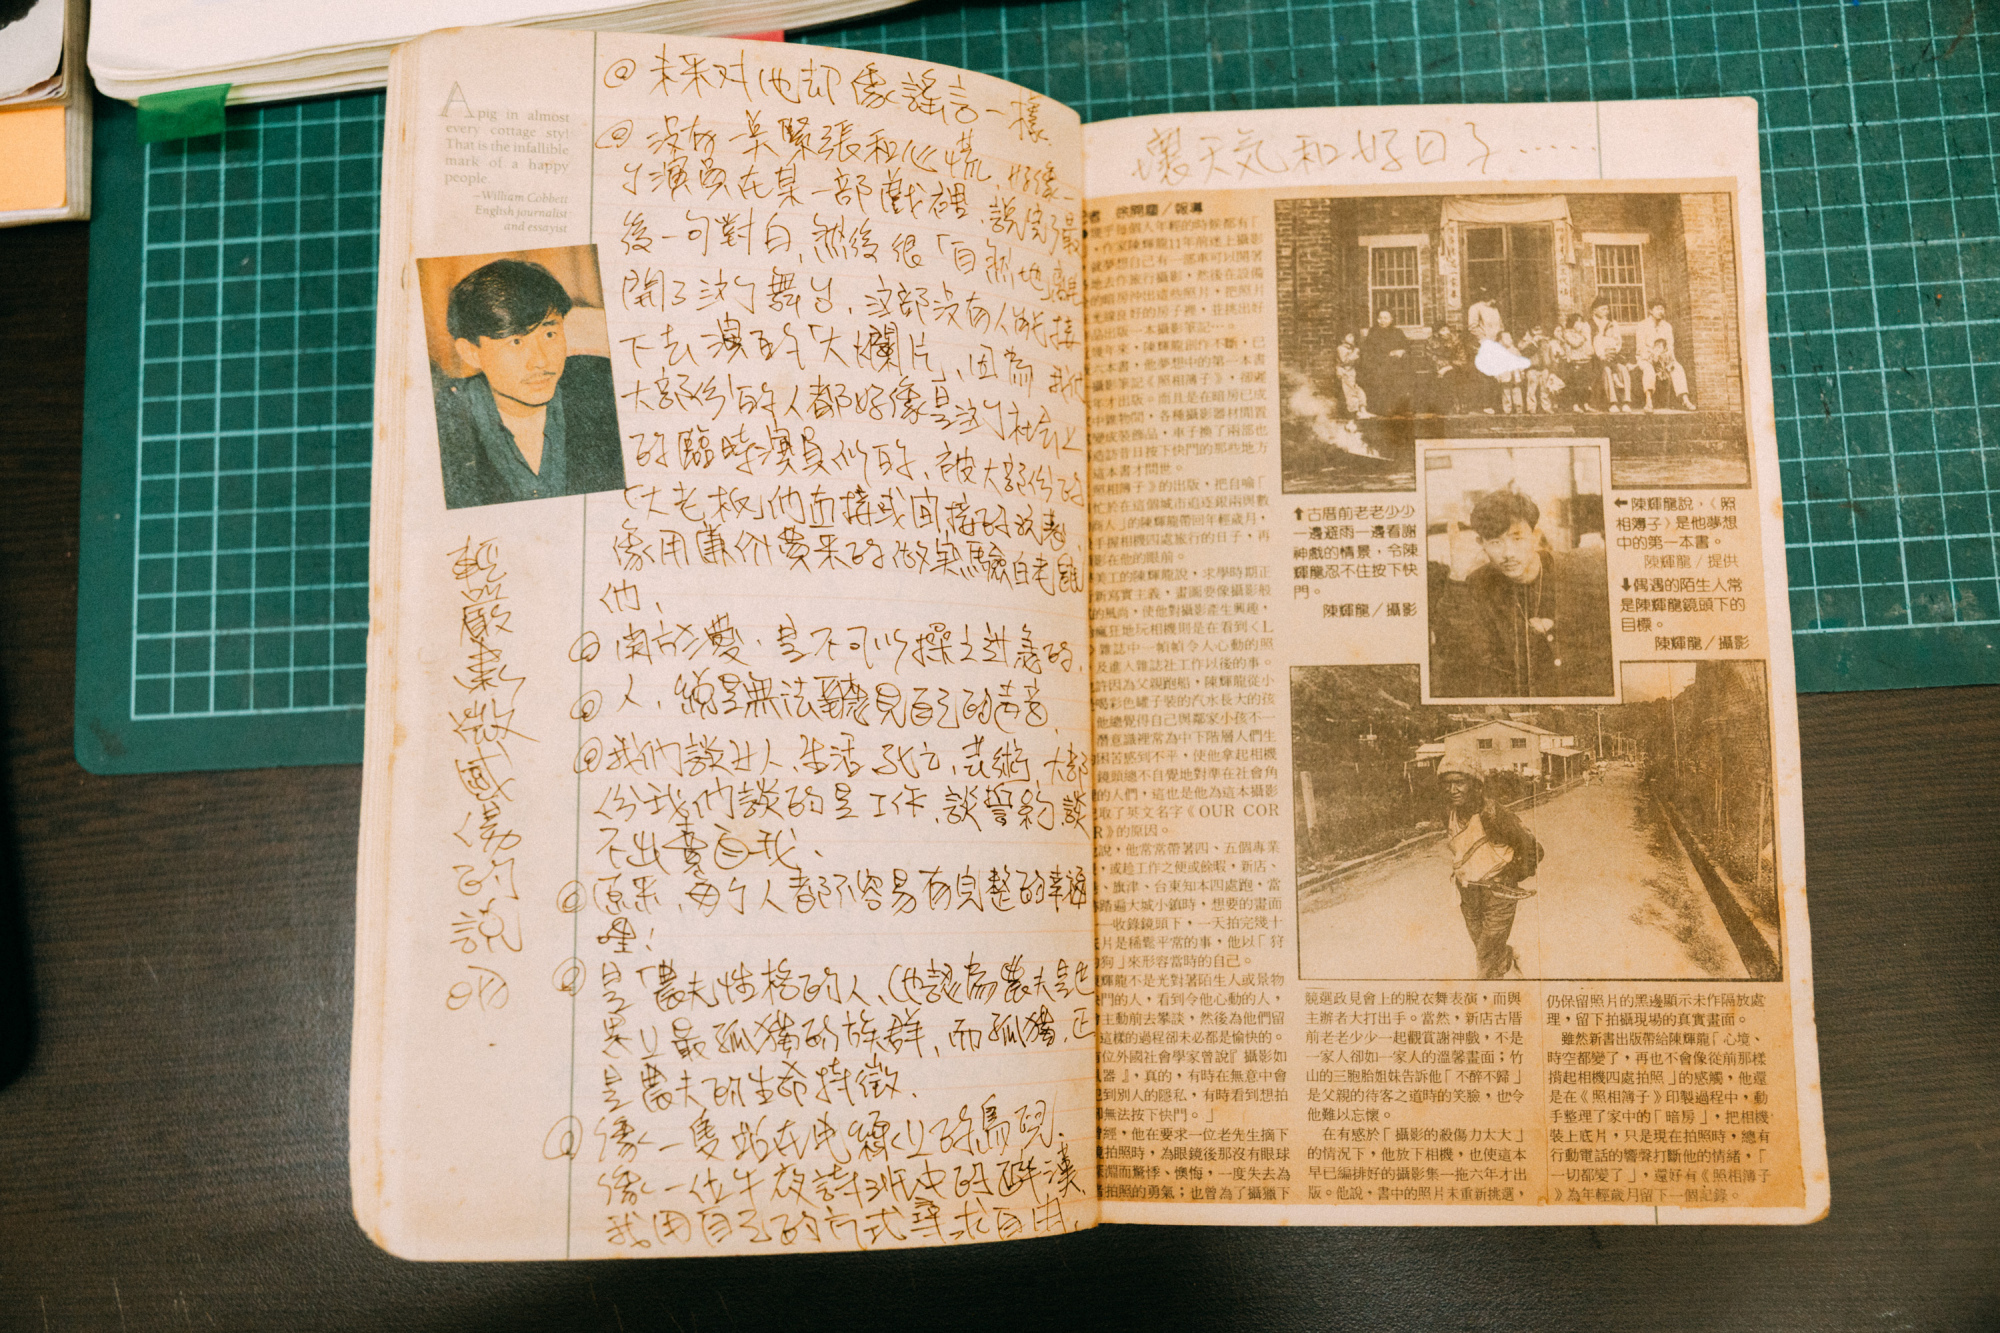 A pig in almost
every cottage sty!
That is the infallible
mark of a happy
people.
—William Cobbett
English journalist
and essayist
@ 未来对他却像謠言一樣.
@ 沒有 緊張和心慌、好像一
个演員在某一部戲裡、說完了最
後一句對白,然後很「自然地」離
開了这个舞台,这部沒有人願接
下去演的「大爛片」,因為
大部份的人都好像是这个社会上
的臨時演員似的,被大部份的
「大老板」他直接或间接的
像用廉价費来的做実驗白老鼠
他、
@ 愛·是不可以操之过急的,
@ 人,總是無法聽見自己的声音,
@ 我們談女人、生活、死亡、芸術,大部
份我們談的是工作,談誓約,談
不出賣自我、
@ 原来,每个人都不容易有完整的幸福
哩!
@ 是「農夫性格的人、(他認為農夫是世
界上最孤獨的族群,而孤獨,正
是農夫的生命特徵.
@ 像一隻站在电線上的鳥兒、
像一位午夜詩班中的醉漢,
我用自己的方式尋求自由,
輕 嚴肅 微 感傷的說
壞天氣和好日子……
者 徐開塵/報導
幾乎每個人年輕的時候都有「
,作家陳輝龍11年前迷上攝影
就夢想自己有一部車可以開著
地去作旅行攝影,然後在設備
的暗房沖出這些照片,把照片
光線良好的房子裡,並挑出好
品出版一本攝影筆記…。
幾年來,陳輝龍創作不斷,已
六本書,他夢想中的第一本書
攝影筆記《照相簿子》,卻遲
年才出版。而且是在暗房已成
中雜物間,各種攝影器材閒置
變成裝飾品,車子換了兩部也
造訪昔日按下快門的那些地方
這本書才問世。
照相簿子》的出版,把自喻「
忙於在這個城市追逐銀兩與數
商人」的陳輝龍帶回年輕歲月,
手握相機四處旅行的日子,再
影在他的眼前。
美工的陳輝龍說,求學時期正
新寫實主義,畫圖要像攝影般
的風尚,使他對攝影產生興趣,
瘋狂地玩相機則是在看到《L
》雜誌中一幀幀令人心動的照
及進入雜誌社工作以後的事。
許因為父親跑船,陳輝龍從小
喝彩色罐子裝的汽水長大的孩
他總覺得自己與鄰家小孩不一
潛意識裡常為中下階層人們生
困苦感到不平,使他拿起相機
鏡頭總不自覺地對準在社會角
的人們,這也是他為這本攝影
取了英文名字《OUR COR
R》的原因。
說,他常常帶著四、五個專業
,或趁工作之便或餘暇,新店、
、旗津、台東知本四處跑,當
踏遍大城小鎮時,想要的畫面
一收錄鏡頭下,一天拍完幾十
片是稀鬆平常的事,他以「狩
狗」來形容當時的自己。
輝龍不是光對著陌生人或景物
快門的人,看到令他心動的人,
會主動前去攀談,然後為他們留
這樣的過程卻未必都是愉快的。
有位外國社會學家曾說『攝影如
器』,真的,有時在無意中會
到別人的隱私,有時看到想拍
卻無法按下快門。」
曾經,他在要求一位老先生摘下
鏡拍照時,為眼鏡後那沒有眼球
深淵而驚悸、懊悔,一度失去為
者拍照的勇氣;也曾為了攝獵下
⬆古厝前老老少少
一邊避雨一邊看謝
神戲的情景,令陳
輝龍忍不住按下快
門。
陳輝龍/攝影
⬅陳輝龍說,《照
相簿子》是他夢想
中的第一本書。
陳輝龍/提供
⬇偶遇的陌生人常
是陳輝龍鏡頭下的
目標。
陳輝龍/攝影
競選政見會上的脫衣舞表演,而與
主辦者大打出手。當然,新店古厝
前老老少少一起觀賞謝神戲,不是
一家人卻如一家人的溫馨畫面;竹
山的三胞胎姐妹告訴他「不醉不歸」
是父親的待客之道時的笑臉,也令
他難以忘懷。
在有感於「攝影的殺傷力太大」
的情況下,他放下相機,也使這本
早已編排好的攝影集一拖六年才出
版。他說,書中的照片未重新挑選,
仍保留照片的黑邊顯示未作隔放處
理,留下拍攝現場的真實畫面。
雖然新書出版帶給陳輝龍「心境、
時空都變了,再也不會像從前那樣
揹起相機四處拍照」的感觸,他還
是在《照相簿子》印製過程中,動
手整理了家中的「暗房」,把相機
裝上底片,只是現在拍照時,總有
行動電話的響聲打斷他的情緒,「
一切都變了」,還好有《照相簿子
》為年輕歲月留下一個記錄。